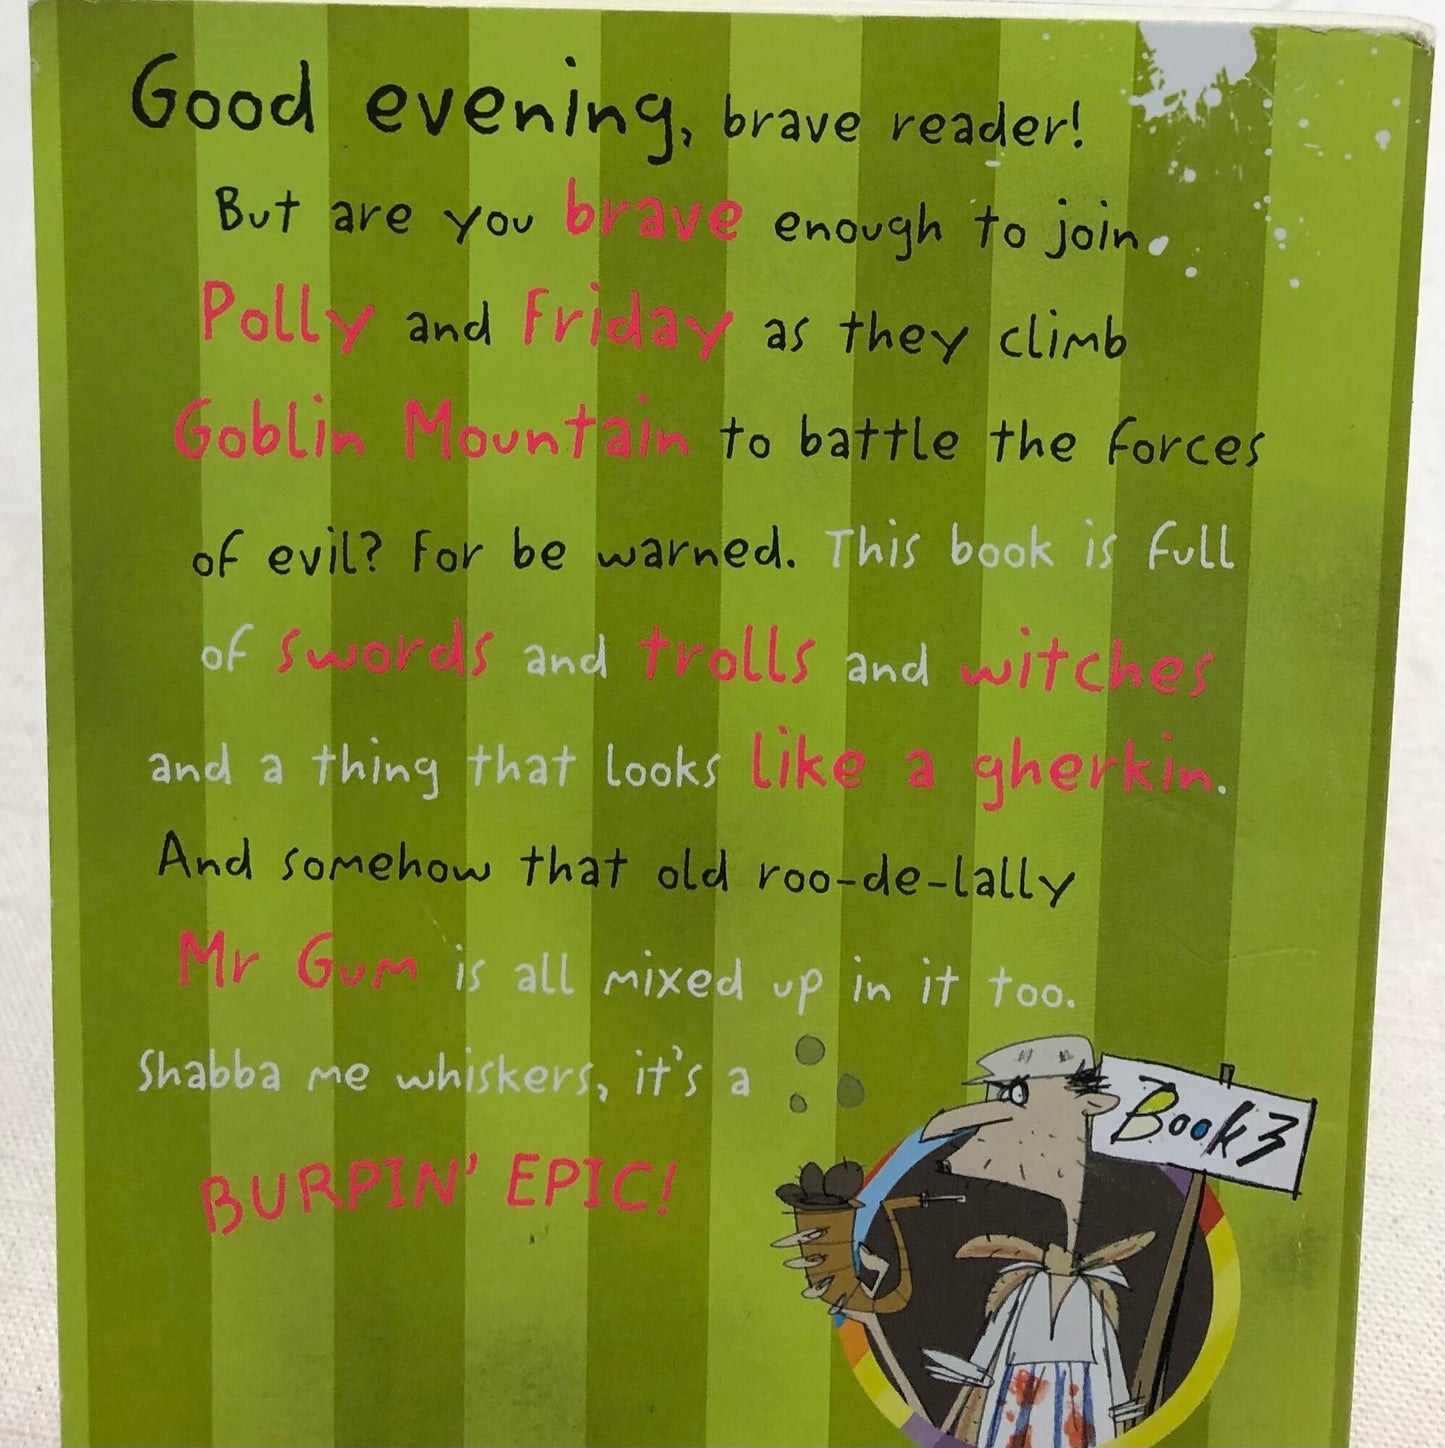 Good evening, brave reader!
But are you brave enough to join
Polly and Friday as they climb
Goblin Mountain to battle the forces
of evil? For be warned. This book is full
of swords and trolls and witches
and a thing that looks like a gherkin.
And somehow that old roo-de-lally
Mr Gum is all mixed up in it too.
Shabba me whiskers, it's a
BURPIN' EPIC!
Book 3